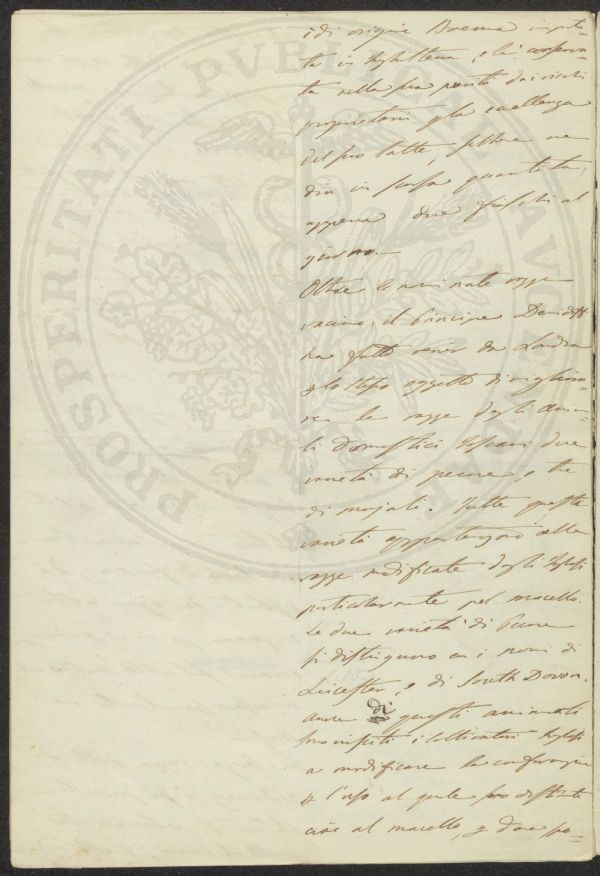 PROSPERITATI PVBLICAE AVGENDAE
è di origine Brema importa-
ta in Inghilterra, e là conserva-
ta nella sua purità dai ricchi
proprietari p la eccellenza
del suo latte, sebbene ne
dia in scarsa quantità,
appena due fiaschi al
giorno.
Oltre le nominate razze
vaccine, il Principe Demidoff
ha fatto venir da Londra
p lo stesso oggetto di migliora-
re le razze degli Anima-
li domestici Toscani due
varietà di pecore, e tre
di majali. Tutte queste
varietà appartengono alle
razze modificate dagl'Inglesi
particolarmente pel macello.
Le due varietà di Pecore
si distinguono coi nomi di
Leicester, e di South Down.
Anche di questi animali
sono riusciti i cultivatori Inglesi
a modificare la configurazione
p l'uso al quale sono destinati
cioè al macello, e dove